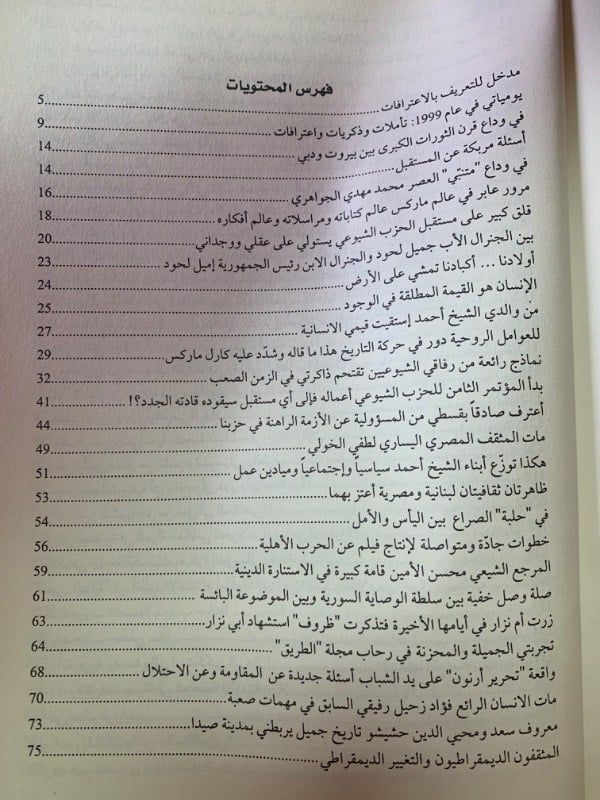 فهرس المحتويات
مدخل للتعريف بالاعترافات.....5
يومياتي في عام 1999: تأملات وذكريات واعترافات.....9
في وداع قرن الثورات الكبرى بين بيروت ودبي.....14
أسئلة مربكة عن المستقبل.....14
في وداع "متنبّي" العصر محمد مهدي الجواهري.....16
مرور عابر في عالم ماركس عالم كتاباته ومراسلاته وعالم أفكاره.....18
قلق كبير على مستقبل الحزب الشيوعي يستولي على عقلي ووجداني.....20
بين الجنرال الأب جميل لحود والجنرال الابن رئيس الجمهورية إميل لحود.....23
أولادنا ... أكبادنا تمشي على الأرض.....24
الإنسان هو القيمة المطلقة في الوجود.....25
من والدي الشيخ أحمد إستقيت قيمي الانسانية.....27
للعوامل الروحية دور في حركة التاريخ هذا ما قاله وشدّد عليه كارل ماركس.....29
نماذج رائعة من رفاقي الشيوعيين تقتحم ذاكرتي في الزمن الصعب.....32
بدأ المؤتمر الثامن للحزب الشيوعي أعماله فإلى أي مستقبل سيقوده قادته الجدد؟!.....41
أعترف صادقاً بقسطي من المسؤولية عن الأزمة الراهنة في حزبنا.....44
مات المثقف المصري اليساري لطفي الخولي.....49
هكذا توزّع أبناء الشيخ أحمد سياسياً وإجتماعياً وميادين عمل.....51
ظاهرتان ثقافيتان لبنانية ومصرية أعتز بهما.....53
في "حلبة" الصراع بين اليأس والأمل.....54
خطوات جادّة ومتواصلة لإنتاج فيلم عن الحرب الأهلية.....56
المرجع الشيعي محسن الأمين قامة كبيرة في الاستنارة الدينية.....59
صلة وصل خفية بين سلطة الوصاية السورية وبين الموضوعة البائسة.....61
زرت أم نزار في أيامها الأخيرة فتذكرت "ظروف" استشهاد أبي نزار.....63
تجربتي الجميلة والمحزنة في رحاب مجلة "الطريق".....64
واقعة "تحرير أرنون" على يد الشباب أسئلة جديدة عن المقاومة وعن الاحتلال.....68
مات الانسان الرائع فؤاد زحيل رفيقي السابق في مهمات صعبة.....70
معروف سعد ومحيي الدين حشيشو تاريخ جميل يربطني بمدينة صيدا.....73
المثقفون الديمقراطيون والتغيير الديمقراطي.....75